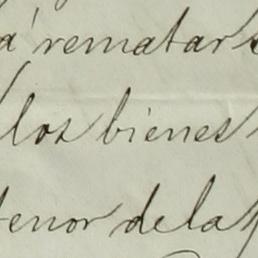 á rematar
los bienes
tenor de la